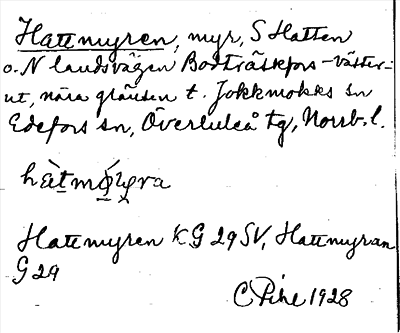 Hattmyren, myr, S Hatten
o. N landsvägen Bodträskfors-väster-
ut, nära gränsen t. Jokkmokks sn
Edefors sn, Överluleå tg, Norrb. l.
Hattmyren KG 29 SV, Hattmyran
G 29
C Pihl 1928